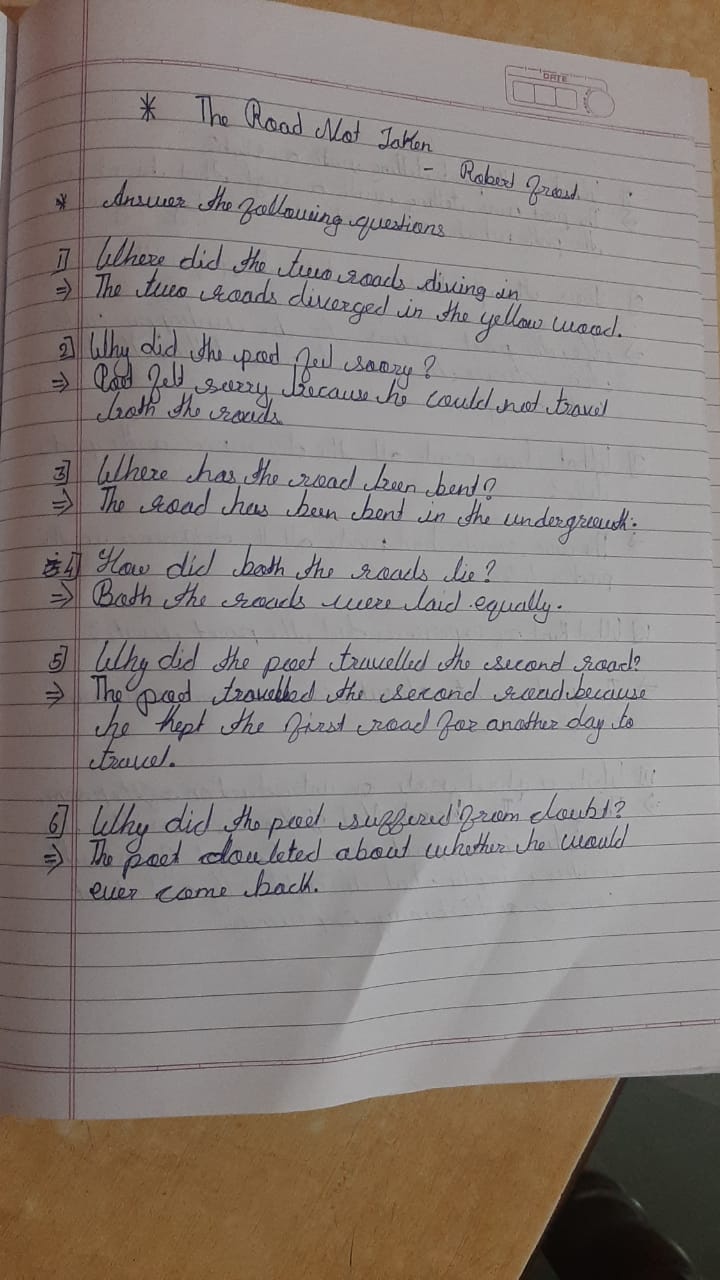 DATE
* The Road Not Taken
- Robert Frost.
* Answer the following questions
1] Where did the two roads diving in
⇒ The two roads diverged in the yellow wood.
2] Why did the poet feel sorry?
⇒ Poet felt sorry because he could not travel
both the roads.
3] Where has the road been bent?
⇒ The road has been bent in the undergrowth.
4] How did both the roads lie?
⇒ Both the roads were laid equally.
5] Why did the poet travelled the second road?
⇒ The poet travelled the second road because
he kept the first road for another day to
travel.
6] Why did the poet suffered from doubt?
⇒ The poet doubted about whether he would
ever come back.